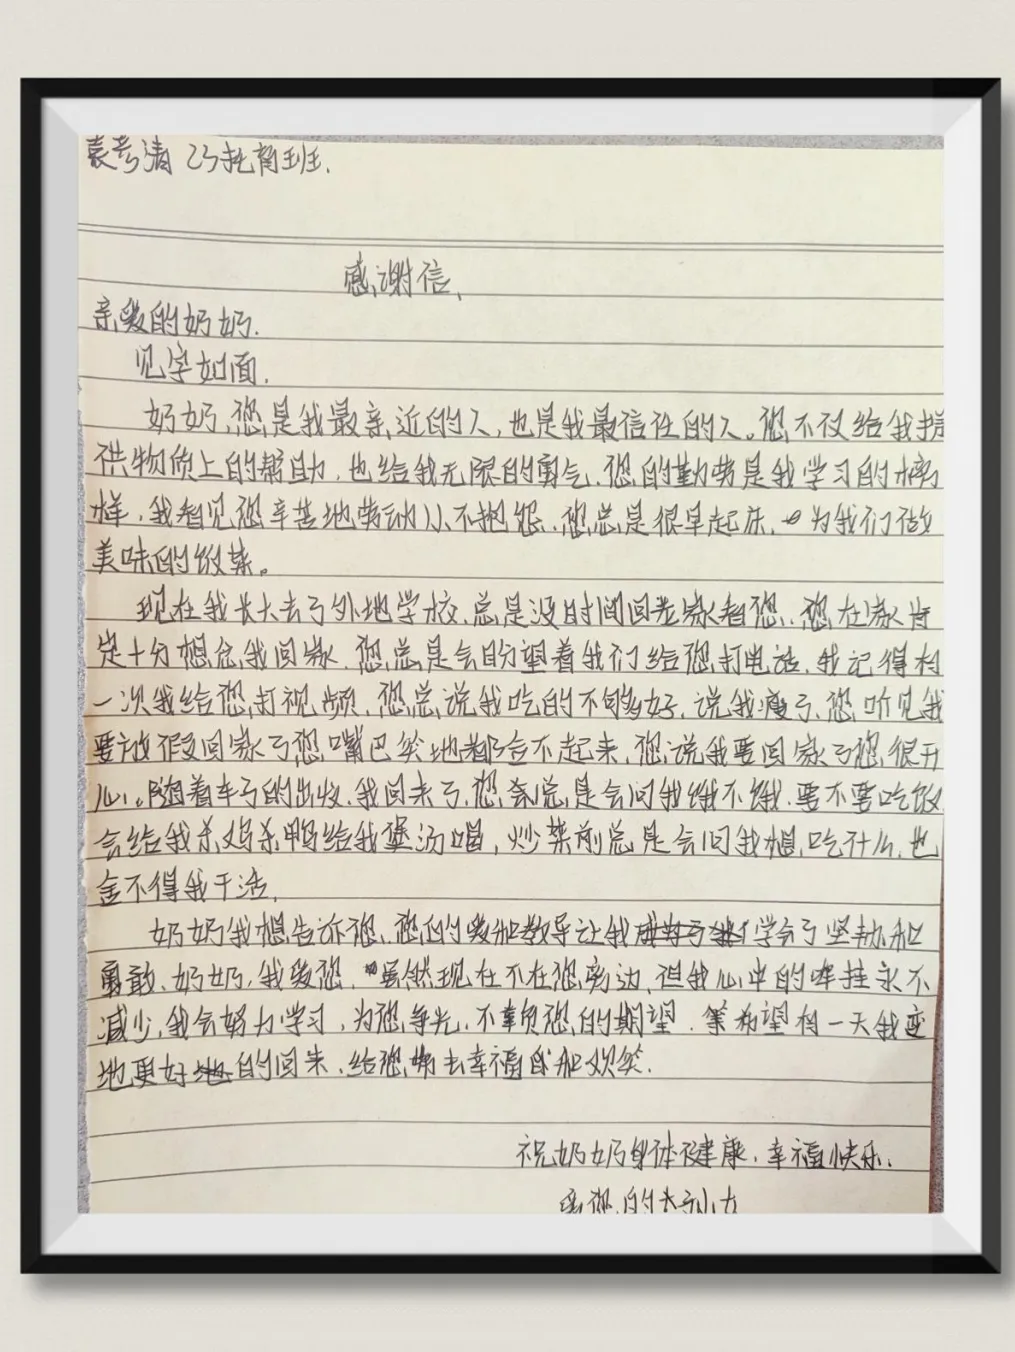 袁 清 23托育班.
感谢信、
亲爱的奶奶.
见字如面.
奶奶,您是我最亲近的人,也是我最信任的人。您不仅给我提
供物质上的帮助,也给我无限的勇气.您的勤劳是我学习的榜
样,我看见您辛苦地劳动从不抱怨.您总是很早起床, 为我们做
美味的饭菜。
现在我长大去了外地学校,总是没时间回老家看您.您在家肯
定十分想念我回家.您总是会盼望着我们给您打电话.我记得有
一次我给您打视频,您总说我吃的不够好,说我瘦了、您听见我
要放假回家了您嘴巴笑地都合不起来.您说我要回家了您很开
心。随着车子的出收.我回来了.您 总是会问我饿不饿.要不要吃饭
会给我杀鸡杀鸭给我煲汤喝,炒菜前总是会问我想吃什么.也
舍不得我干活.
奶奶我想告诉您.您的爱和教导让我 学会了坚韧和
勇敢.奶奶,我爱您. 虽然现在不在您旁边.但我心中的牵挂永不
减少,我会努力学习,为您争光,不辜负您的期望. 希望有一天我变
地更好 的回来.给您 去幸福 和欢笑.
祝奶奶身体健康.幸福快乐.
您的大孙女